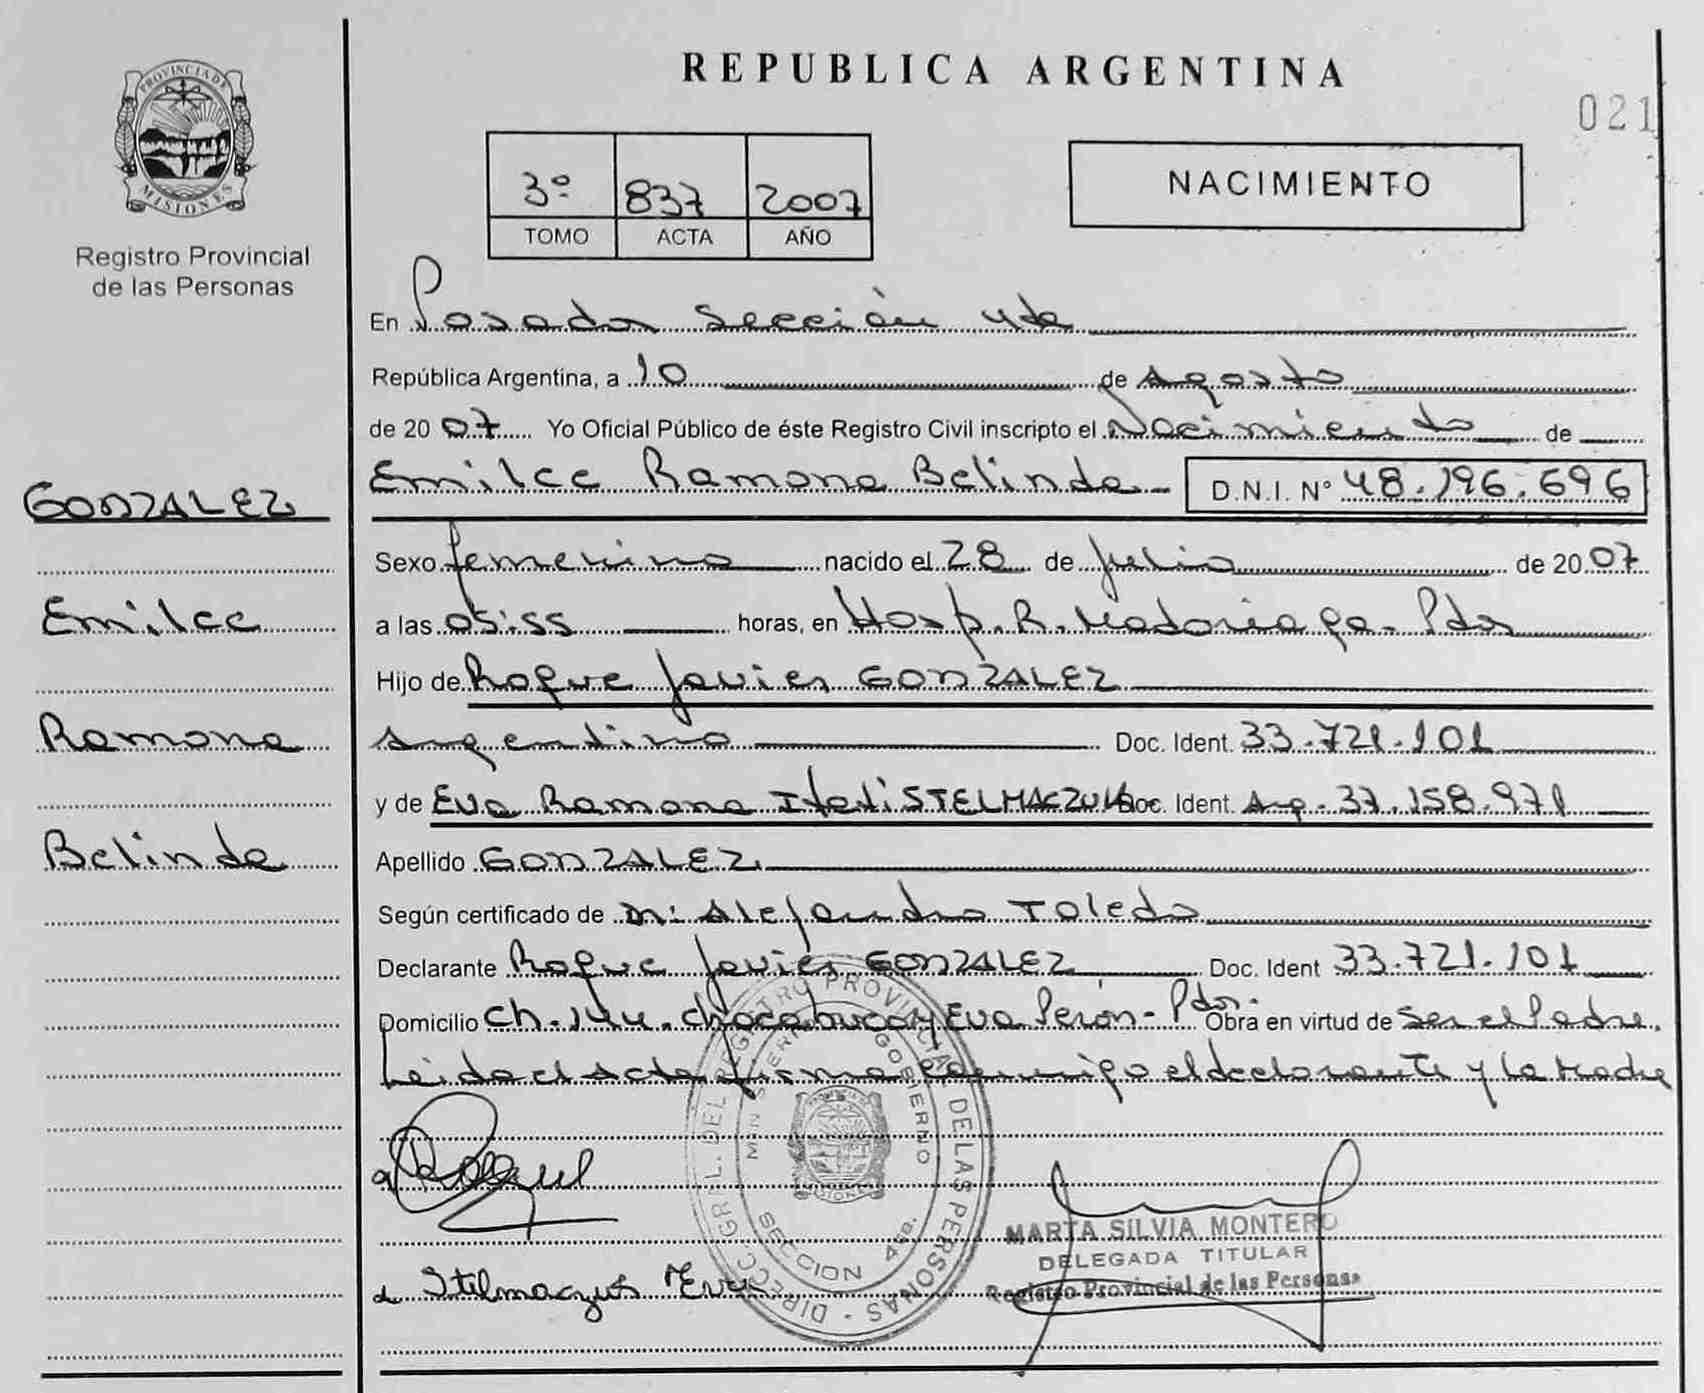 REPUBLICA ARGENTINA
021
PROVINCIA DE MISIONES
Registro Provincial
de las Personas
3º 837 2007
TOMO ACTA AÑO
NACIMIENTO
En Posadas Sección 4ta
República Argentina, a 10 de Agosto
de 2007 Yo Oficial Público de éste Registro Civil inscripto el Nacimiento de
Emilce Ramona Belinda D.N.I. Nº 48.196.696
GONZALEZ
Emilce
Ramona
Belinda
Sexo femenino nacido el 28 de julio de 2007
a las 05:55 horas, en Hosp. R. Madariaga - Pdas
Hijo de Roque Javier GONZALEZ
Argentino Doc. Ident. 33.721.101
y de Eva Ramona Itatí STELMACZUK Doc. Ident. Arg. 37.158.971
Apellido GONZALEZ
Según certificado de Dr: Alejandro Toledo
Declarante Roque Javier GONZALEZ Doc. Ident 33.721.101
Domicilio Ch. 144. Chacabuco y Eva Perón - Pdas. Obra en virtud de Ser el Padre.
Leida el Acta firma conmigo el declarante y la Madre
DIRECC. GRAL. DEL REGISTRO PROVINCIAL DE LAS PERSONAS
MINISTERIO GOBIERNO
MISIONES
SECCION 4ta.
MARTA SILVIA MONTERO
DELEGADA TITULAR
Registro Provincial de las Personas
Stelmaczuk Eva